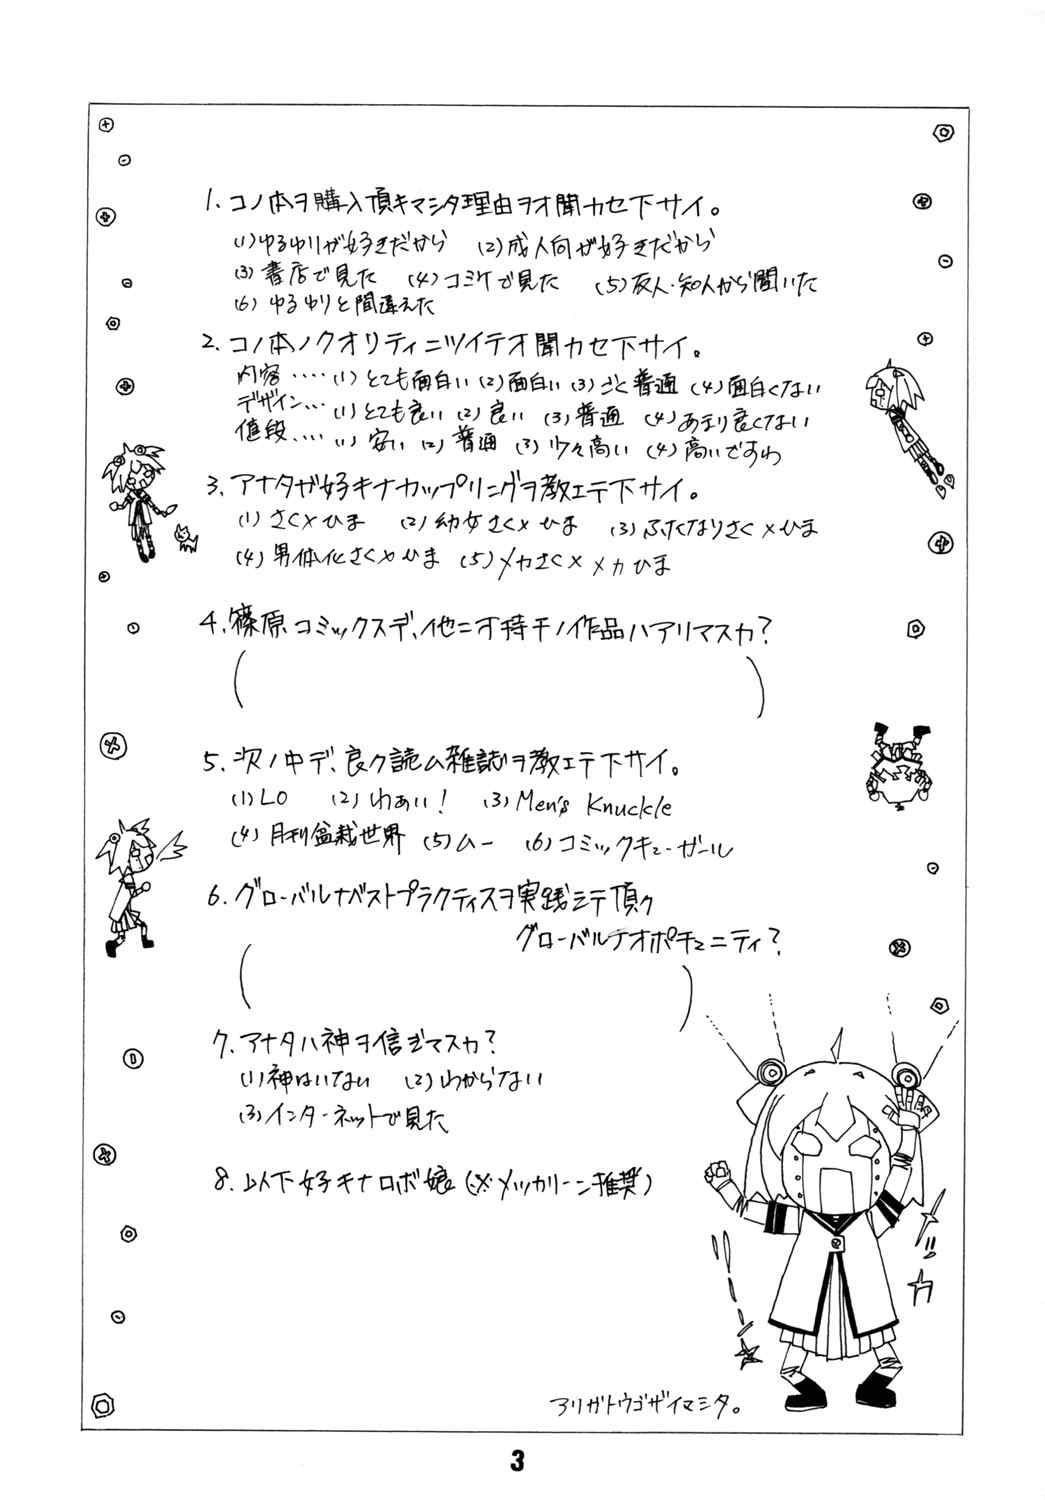 1. コノ本ヲ購入頂キマシタ理由ヲオ聞カセ下サイ。
(1)ゆるゆりが好きだから (2)成人向が好きだから
(3)書店で見た (4)コミケで見た (5)友人・知人から聞いた
(6)ゆるゆりと間違えた
2. コノ本ノクオリティニツイテオ聞カセ下サイ。
内容‥‥(1)とても面白い (2)面白い (3)ごく普通 (4)面白くない
デザイン…(1)とても良い (2)良い (3)普通 (4)あまり良くない
値段‥‥(1)安い (2)普通 (3)少々高い (4)高いですわ
3. アナタガ好キナカップリングヲ教エテ下サイ。
(1)さく×ひま (2)幼女さく×ひま (3)ふたなりさく×ひま
(4)男体化さく×ひま (5)メカさく×メカひま
4. 篠原コミックスデ、他ニオ持チノ作品ハアリマスカ?
( )
5. 次ノ中デ、良ク読ム雑誌ヲ教エテ下サイ。
(1)LO (2)わぁい! (3)Men's Knuckle
(4)月刊盆栽世界 (5)ムー (6)コミックキューガール
6. グローバルナベストプラクティスヲ実践シテ頂ク
グローバルナオポチュニティ?
( )
7. アナタハ神ヲ信ジマスカ?
(1)神はいない (2)わからない
(3)インターネットで見た
8. 以下好キナロボ娘(※メッカリーン推奨)
ピッカ
アリガトウゴザイマシタ。
3